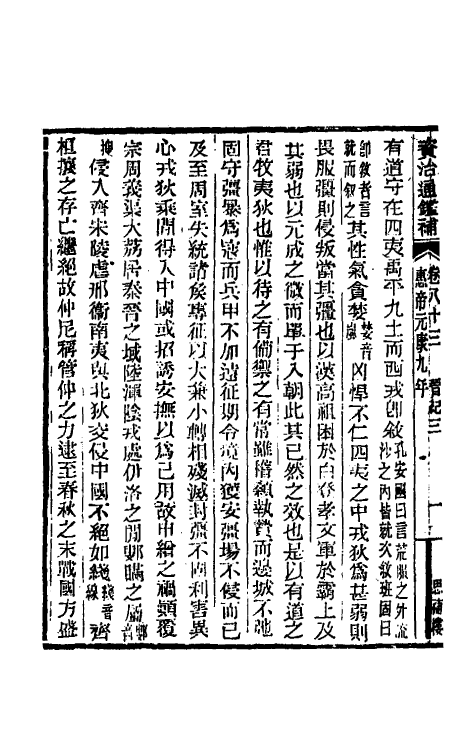 資治通鑑補 卷八十三 晉紀三 惠帝元康九年 一 思補樓
有道守在四夷禹平九土而西戎卽敘孔安國曰言荒服之外流沙之內皆就次敘班固曰
卽敘者言就而敘之其性氣貪婪婪音嵐凶悍不仁四夷之中戎狄爲甚弱則
畏服彊則侵叛當其彊也以漢高祖困於白登孝文軍於霸上及
其弱也以元成之微而單于入朝此其已然之效也是以有道之
君牧夷狄也惟以待之有備禦之有常雖稽顙執贄而邊城不弛
固守彊暴爲寇而兵甲不加遠征期令境內獲安疆場不侵而已
及至周室失統諸侯專征以大兼小轉相殘滅封疆不固利害異
心戎狄乘閒得入中國或招誘安撫以爲己用故申繒之禍顚覆
宗周襄公要秦遽興姜戎義渠大荔居秦晉之域陸渾陰戎處伊洛之閒鄋瞞之屬鄋音
搜侵入齊宋陵虐邢衞南夷與北狄交侵中國不絕如綫綫音線齊
桓攘之存亡繼絕故仲尼稱管仲之力逮至春秋之末戰國方盛